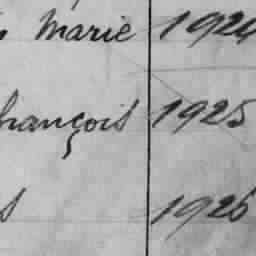 Marie 1924
françois 1925
1926